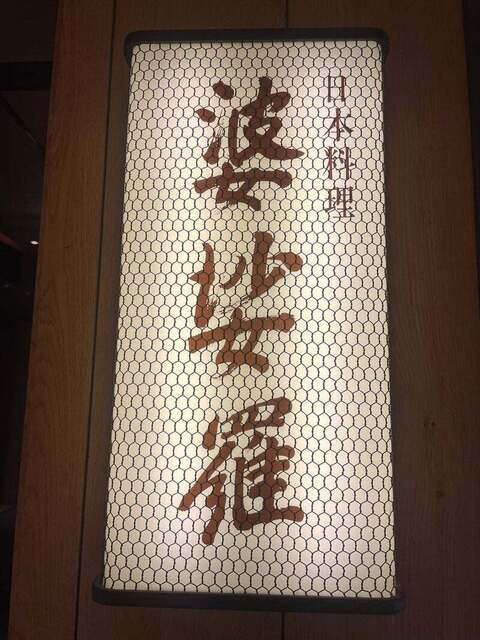 日本料理
婆娑羅